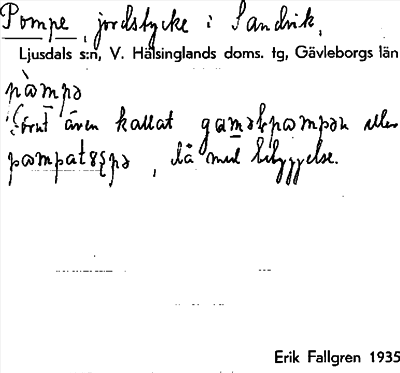 Pompe, jordstycke i Sandvik,
Ljusdals s:n, V. Hälsinglands doms. tg, Gävleborgs län
pàmpə
Förut även kallat gaməlpampən eller
, då med bebyggelse.
Erik Fallgren 1935